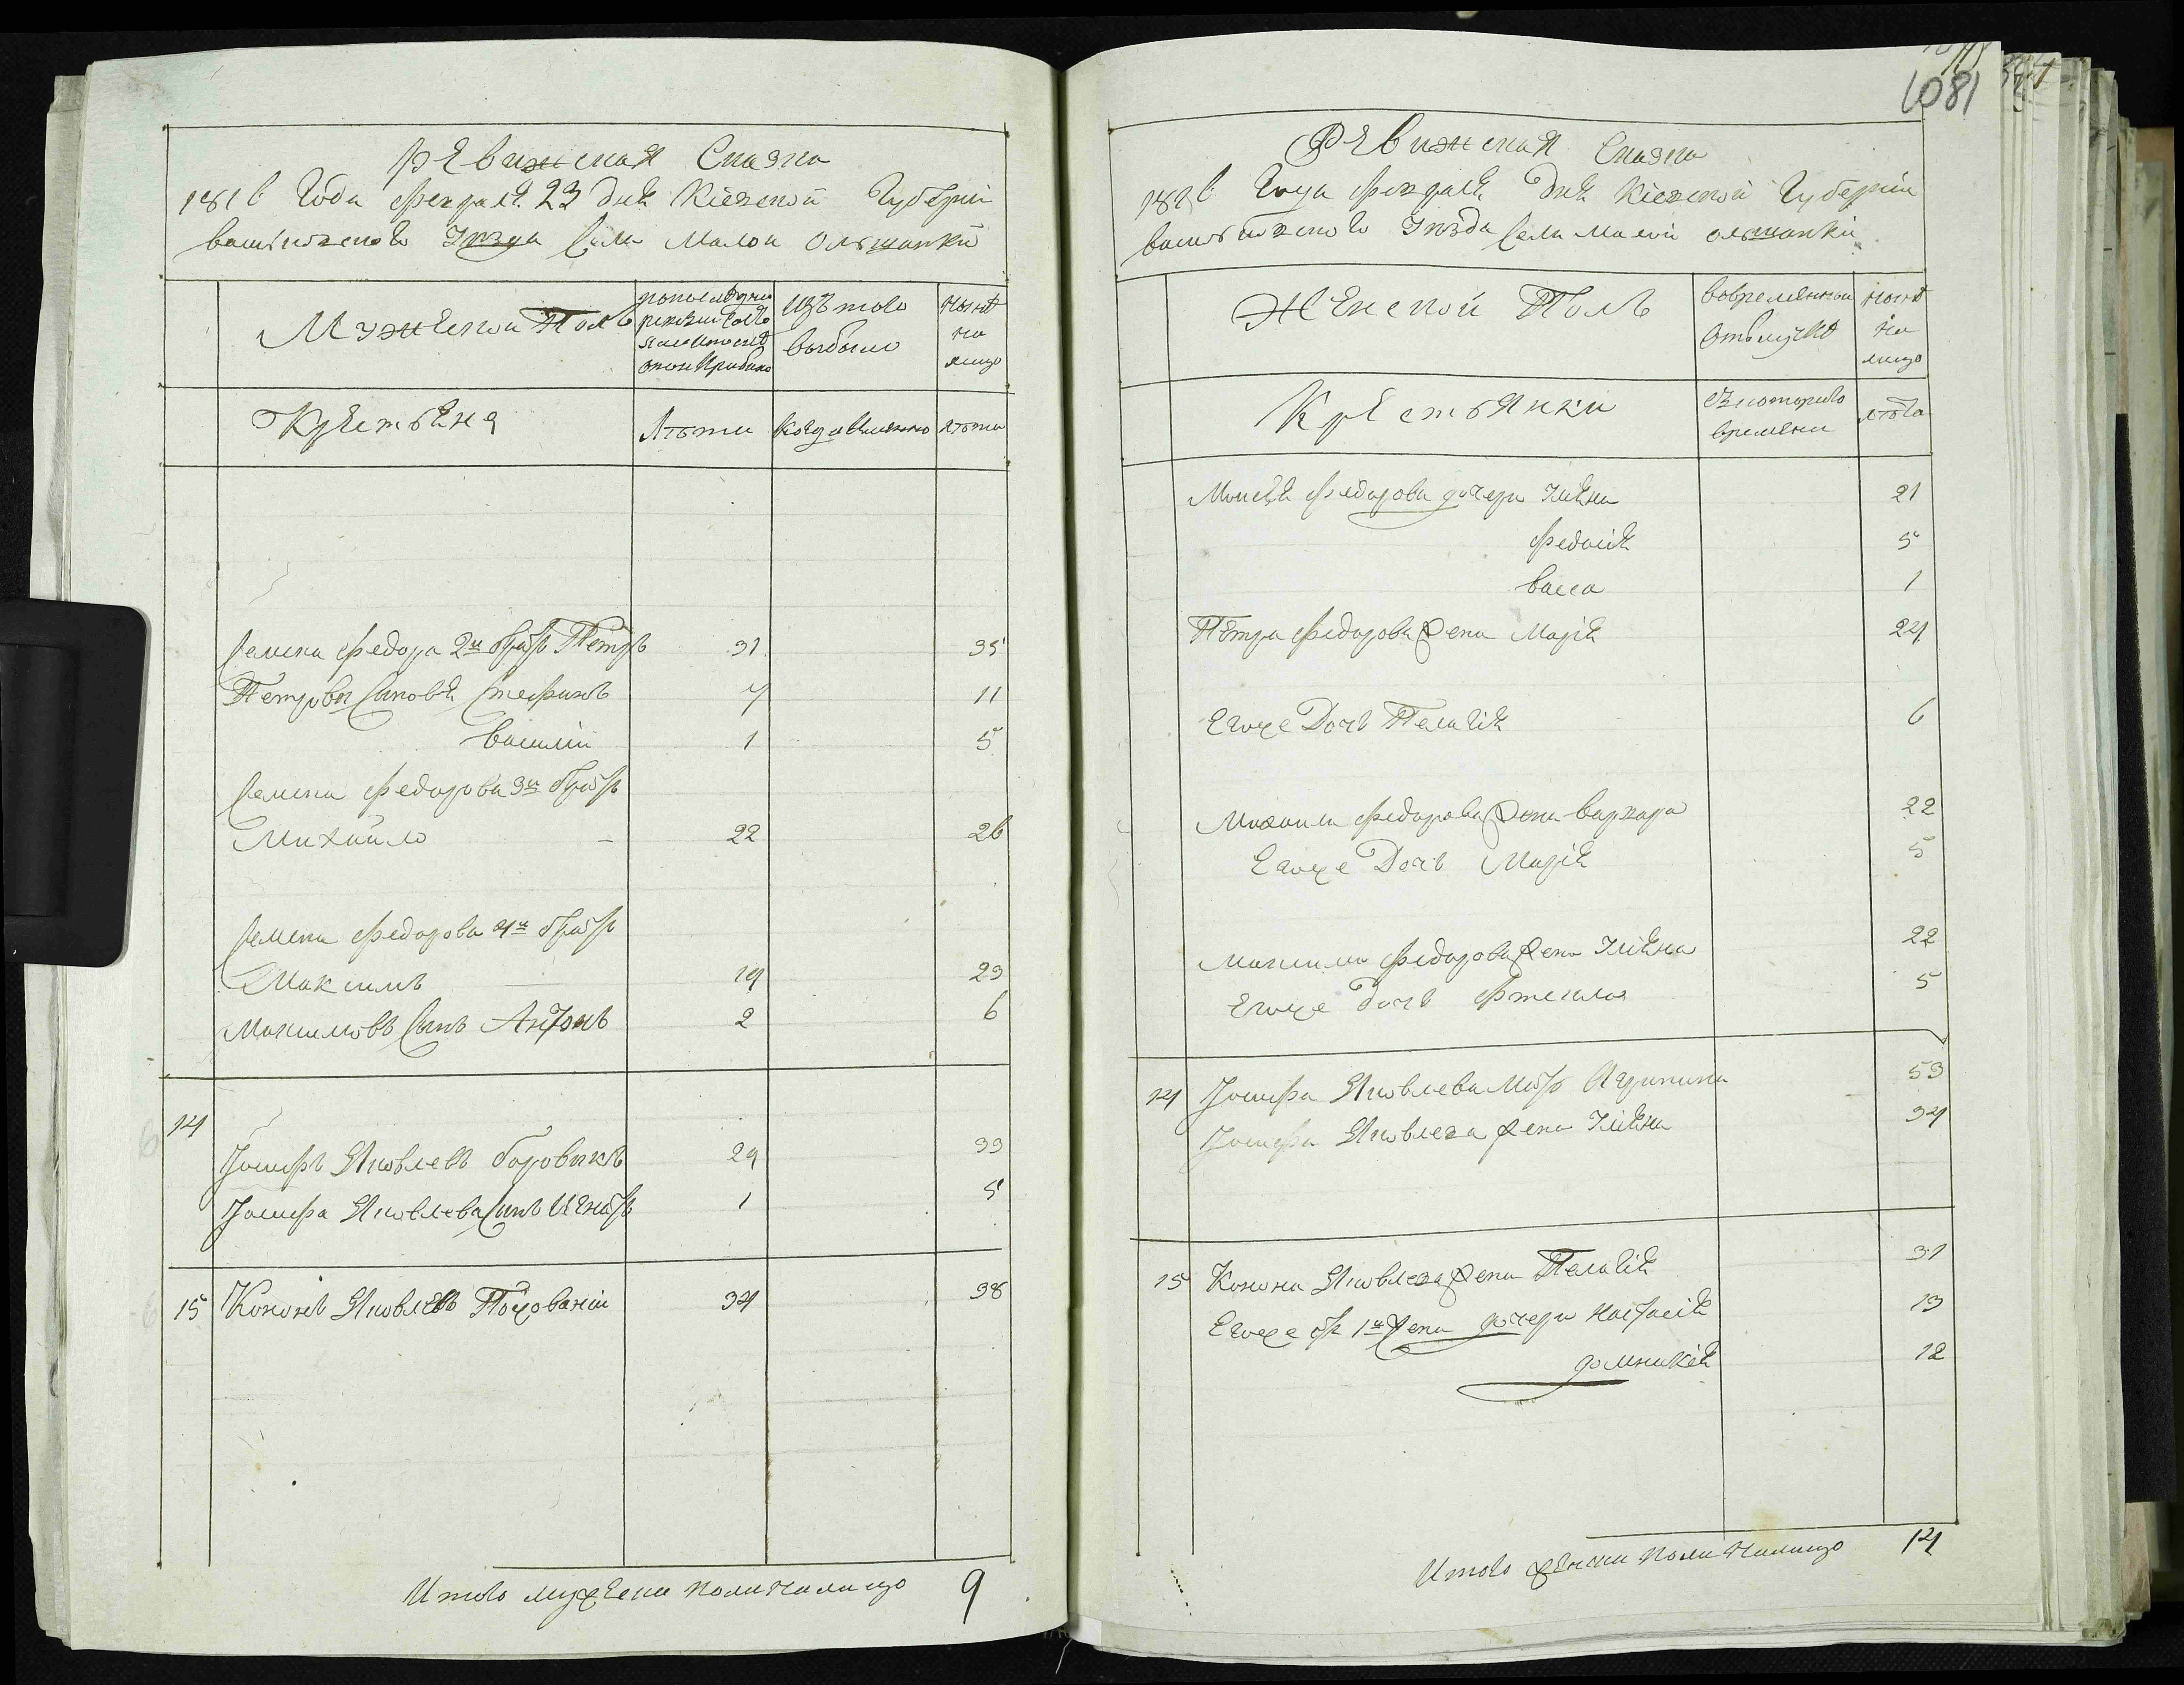 Ревижская Сказка
1816 Года февраля 23 дня Кіевской Губерніи
васильковского Уезда Села Малои Олшанки
Мужеской Полъ
попоследней ревизіи состояло и после оной Прибыло
Изъ того выбыло
ныне на лицо
Крестьяня
Лѣта
Когда именно
лѣта
Семена федора 2й братъ Петръ 31 35
Петровы Сыновя Стефанъ 7 11
василіи 1 5
Семена федорова 3й братъ
Михайло 22 26
Семена федорова 4й братъ
Максимъ 19 23
Максимовъ Сынъ Антонъ 2 6
14
Іосифъ Яковлевъ боровикъ 29 33
Іосифа Яковлева Сынъ Игнатъ 1 5
15 Кононъ Яковлевъ 34 38
Итого мужеска пола налицо 9
1081
Ревижская Сказка
1816 Года февраля дня Кіевской Губерніи
васильковского Уезда Села Малой олшанки
Женской Полъ
вовременной отлучке
ныне на лицо
Крестьянки
Скотораго времени
лѣта
Моисея федорова дочери Уліяна 21
федосія 5
васса 1
Петра федорова жена Марія 24
Егоже Дочь Пелагія 6
Михаила федорова жена варвара 22
Егоже Дочь Марія 5
Максима федорова жена Уліяна 22
Егоже дочь Фтекла 5
14 Іосифа Яковлева Мать Агрипина 53
Іосифа Яковлева жена Уліяна 34
15 Конона Яковлева жена Пелагія 31
Егоже от 1й жены дочери Настасія 13
домникія 12
Итого женска пола налицо 14